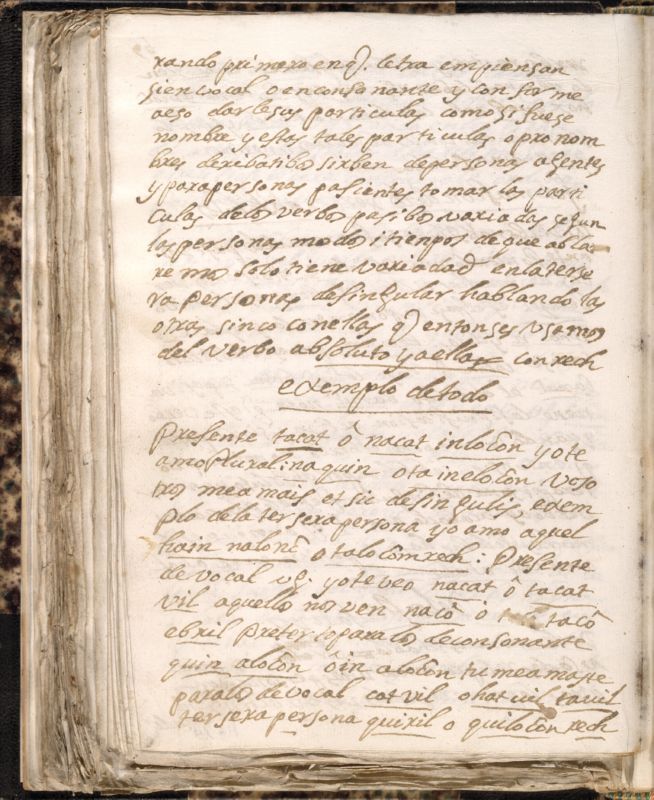 rando primero en q̃. letra empiensan
si en vocal o en consonante y conforme
a eso darle sus particulas como si fuese
nombre y estas tales particulas o pronom
bres deribatibos sirben de personas agentes
y para personas pasientes tomar las parti
culas de los verbos pasibos variadas segun
las personas modos i tienpos de que abla
remos solo tiene variedad en la terse
ra persona de singular hablando las
otras sinco con ellas q̃ entonses usamos
del verbo absoluto y a ella con xech
exemplo de todo
Presente tacat ô nacat inlocôn yo te
amo Plural: naquin o tainelocôn voso
tros me amais et sic de singulis, exem
plo de la tersera persona yo amo aquel
hain nalonc o talocôm xech: Presente
de vocal vg. yo te veo nacat ô tacat
vil aquellos nos ven nacô ô tacô
ebril Preterito para los de consonante
quin alocôn ô in alocôn tu me amaste
para los de vocal cat vil o hat vil tavil
tersera persona quixil o quilocôn xech